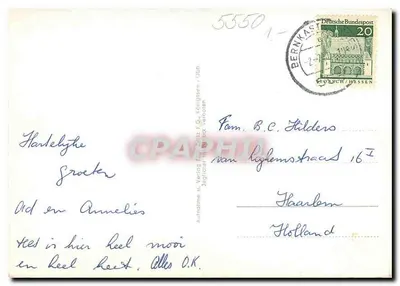 5550,-
BERNKAST
Deutsche Bundespost
20
LORSCH · HESSEN
Hartelijke
groeten
Ad en Annelies
Het is hier heel mooi
en heel heet. Alles O.K.
Fam. B.C. Hilders
van 16 I
Haarlem
Holland
CPARAMA